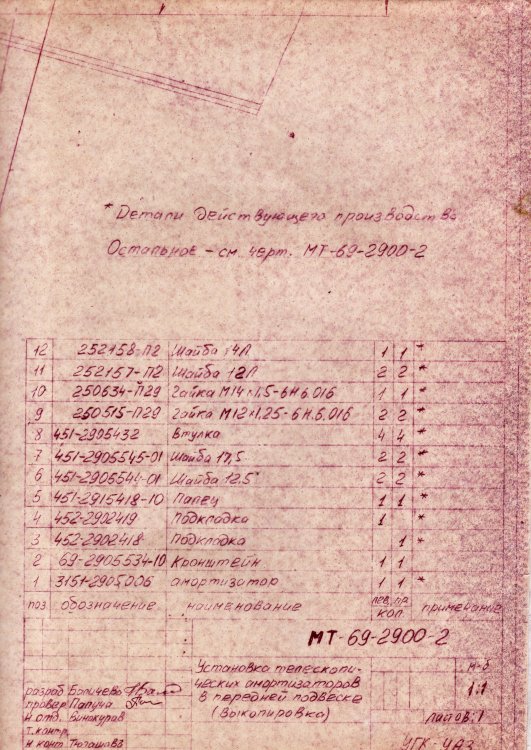 * Детали действующего производства
Остальное - см. черт. МТ-69-2900-2
12 252158-П2 Шайба 14Л 1 1 *
11 252157-П2 Шайба 12Л 2 2 *
10 250634-П29 Гайка М14×1,5-6Н.6.016 1 1 *
9 250515-П29 Гайка М12×1,25-6Н.6.016 2 2 *
8 451-2905432 Втулка 4 4 *
7 451-2905545-01 Шайба 17,5 2 2 *
6 451-2905544-01 Шайба 12,5 2 2 *
5 451-2915418-10 Палец 1 1 *
4 452-2902419 Подкладка 1 *
3 452-2902418 Подкладка 1 *
2 69-2905534-10 Кронштейн 1 1
1 3151-2905006 амортизатор 1 1 *
поз обозначение наименование лев. пр. кол. примечание
МТ-69-2900-2
Установка телескопи-
ческих амортизаторов
в передней подвеске
(выкопировка)
м-б
1:1
листов: 1
разраб.
провер.
н. отд.
т. контр.
н. конт.
УГК-УАЗ